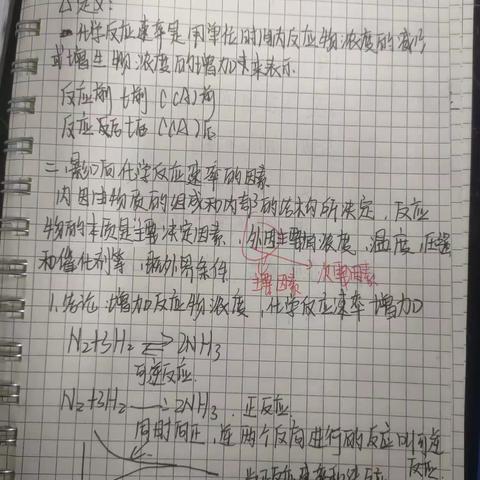 定义:
化学反应速率是用单位时间内反应物浓度的减少
或增生物浓度的增加来表示.
反应前 t前 C(A)前
反应后 t后 C(A)后
二.影响化学反应速率的因素
内因由物质的组成和内部的结构所决定,反应
物的本质是主要决定因素,外因主要有浓度,温度,压强
和催化剂等,外界条件
主要因素 次要因素
1.结论:增加反应物浓度,化学反应速率增加
N₂+3H₂⇌2NH₃
可逆反应.
N₂+3H₂→2NH₃.正反应.
同时向正,逆两个反向进行的反应叫可逆
反应.